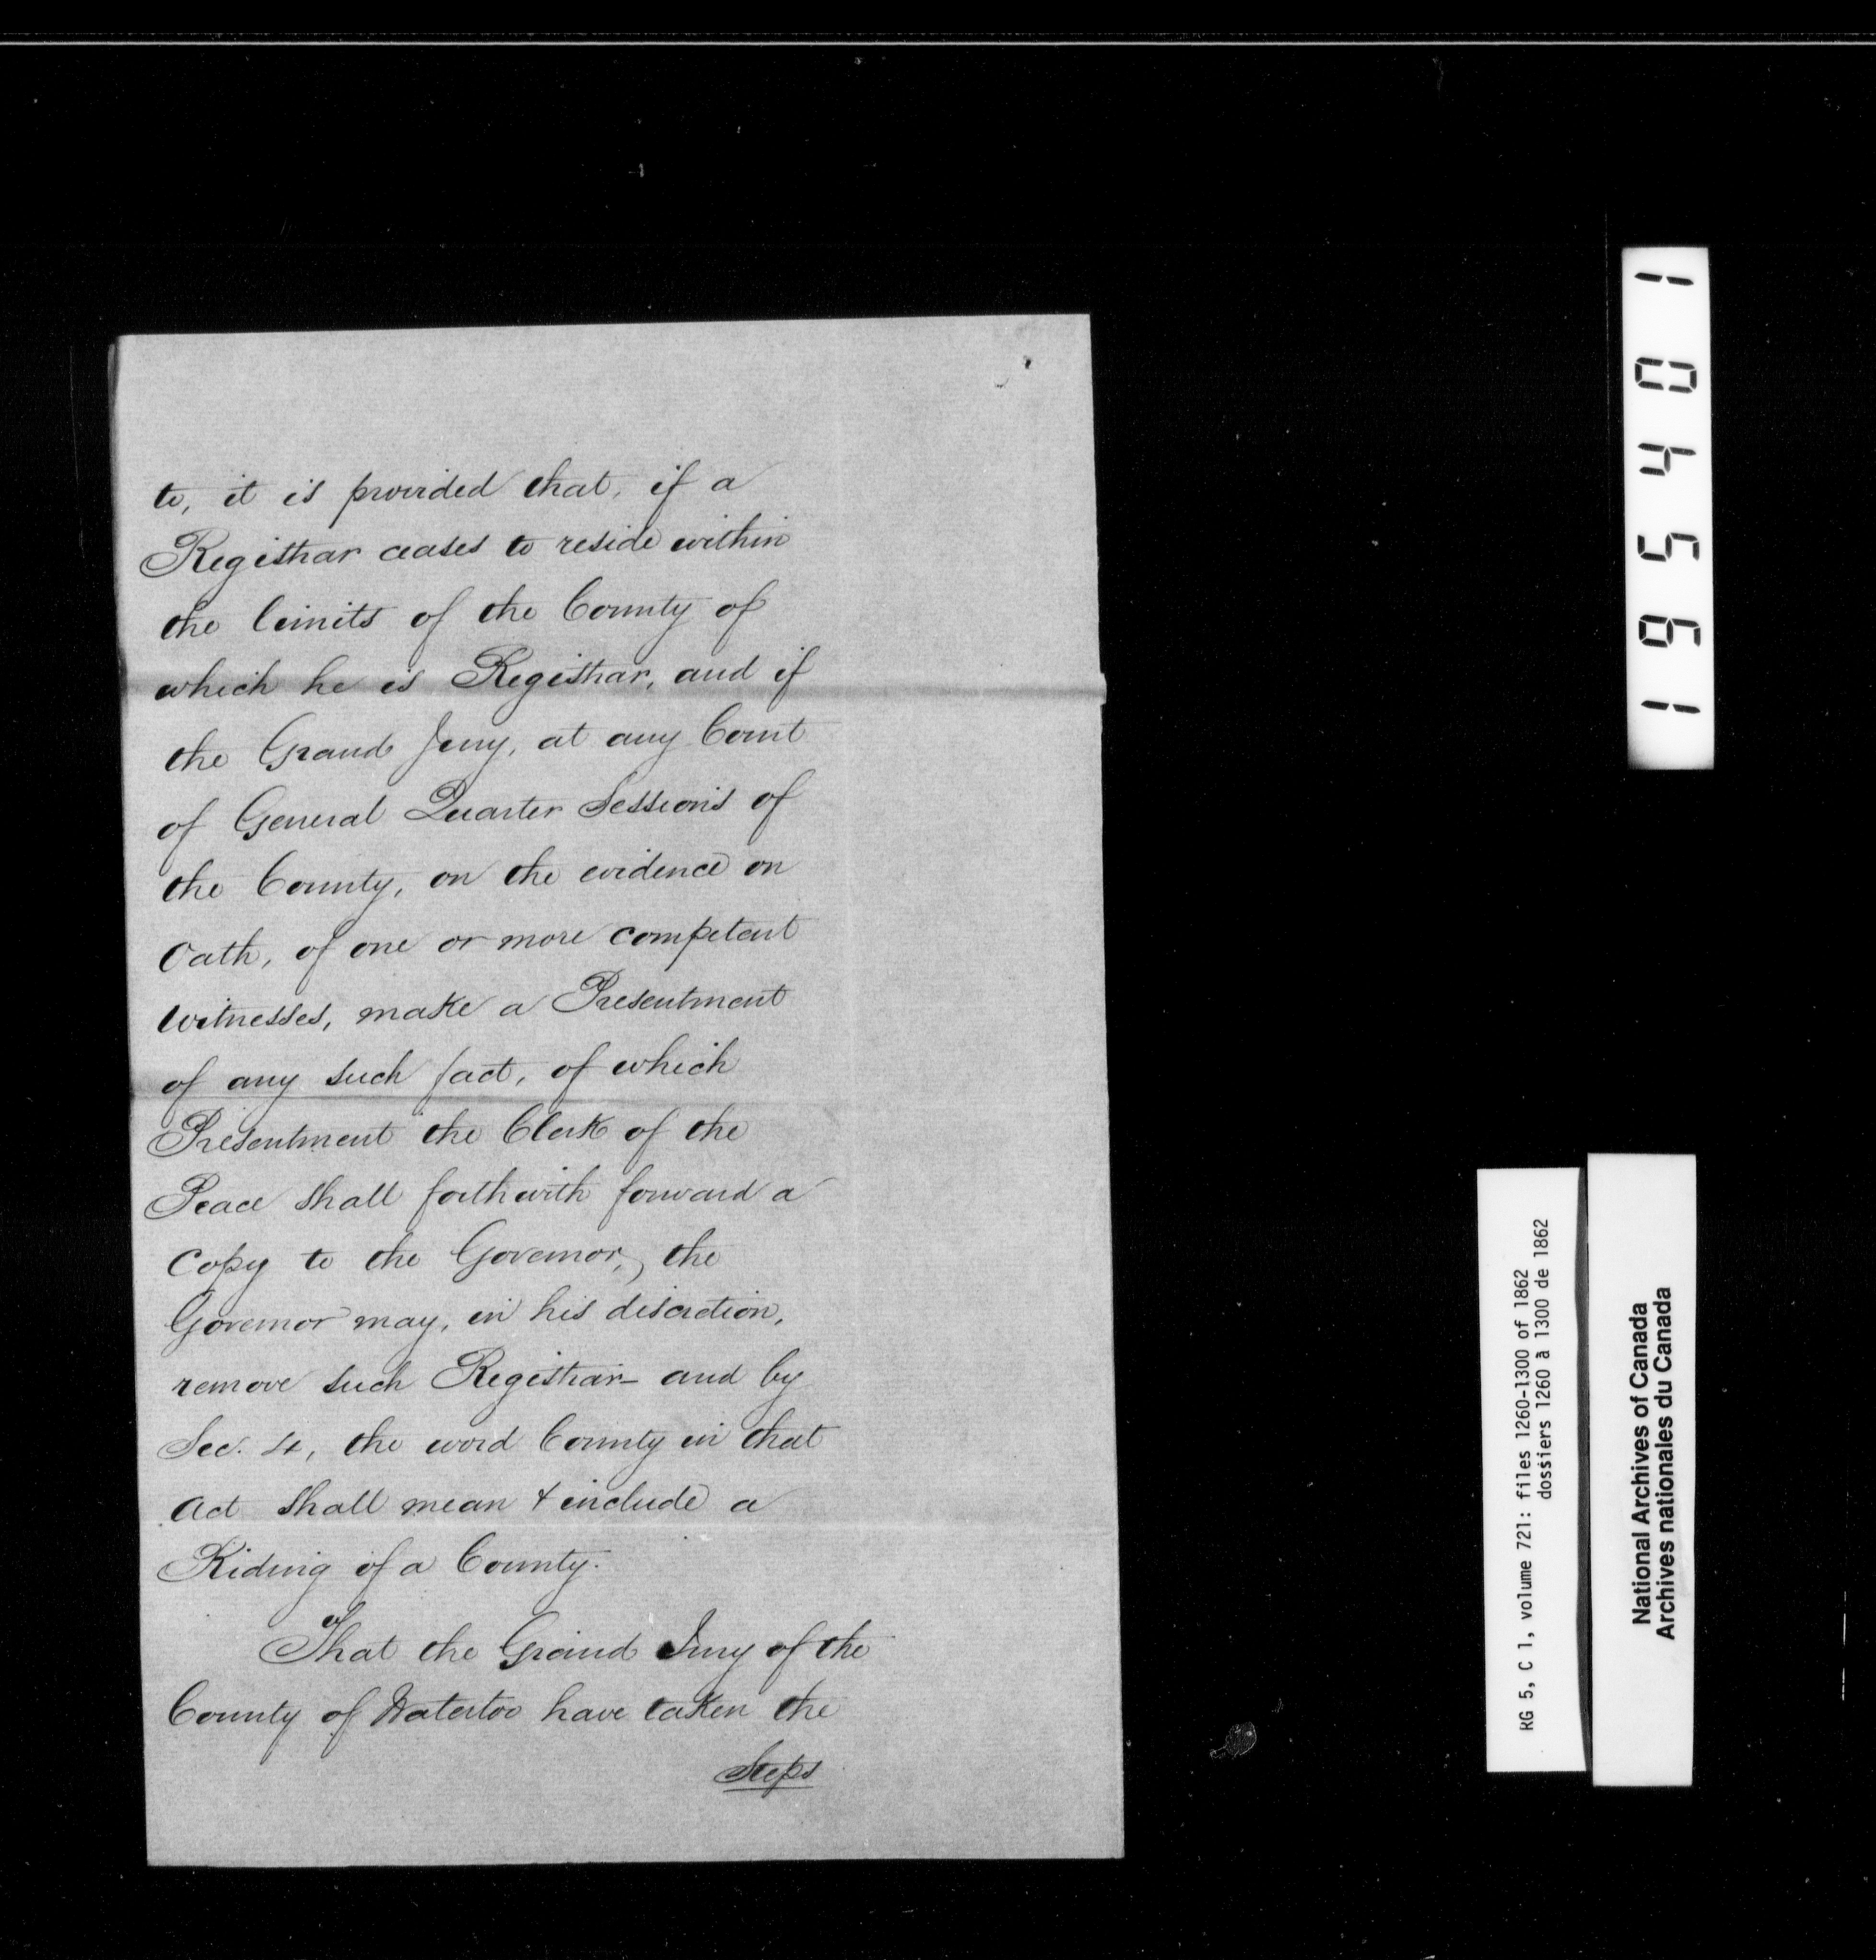 to, it is provided that, if a
Registrar ceases to reside within
the limits of the County of
which he is Registrar, and if
the Grand Jury, at any Court
of General Quarter Sessions of
the County, on the evidence on
Oath, of one or more competent
witnesses, make a Presentment
of any such fact, of which
Presentment the Clerk of the
Peace shall forthwith forward a
Copy to the Governor, the
Governor may, in his discretion,
remove such Registrar - and by
Sec. 4, the word County in that
Act shall mean & include a
Riding of a County.
That the Grand Jury of the
County of Waterloo have taken the
Steps
104561
RG 5, C 1, volume 721: files 1260-1300 of 1862
dossiers 1260 à 1300 de 1862
National Archives of Canada
Archives nationales du Canada